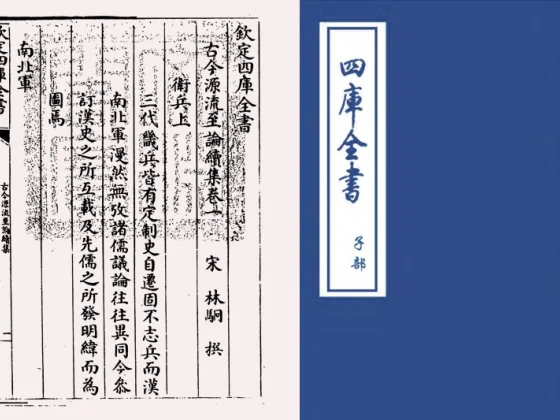 欽定四庫全書
古今源流至論續集卷一
宋 林駉 撰
衛兵上
三代畿兵皆有定制史自遷固不志兵而漢
南北軍漫然無攷諸儒議論往往異同今叅
訂漢史之所互載及先儒之所發明緯而為
圖焉
南北軍
欽定四庫全書
古今源流至論續集
二
四庫全書
子部